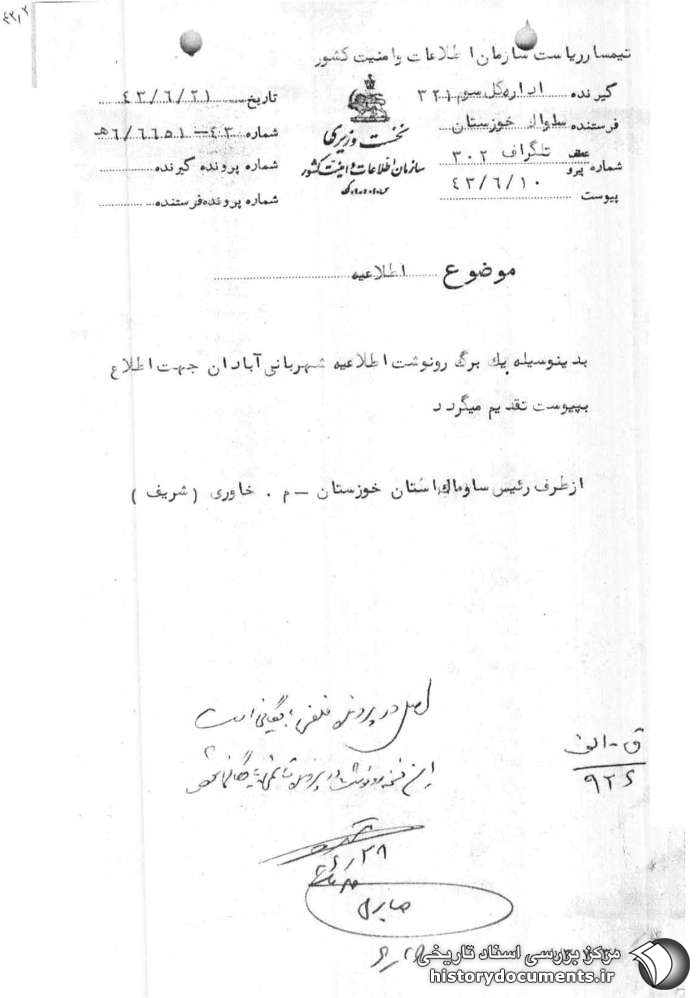 ۴۲/۲
تیمسار ریاست سازمان اطلاعات و امنیت کشور
گیرنده اداره کل سوم ۳۲۱
فرستنده ساواک خوزستان
شماره پیرو عطف تلگراف ۳۰۲
۴۳/۶/۱۰
پیوست
نخست وزیری
سازمان اطلاعات و امنیت کشور
س.ا.و.ا.ک
تاریخ ۴۳/۶/۲۱
شماره ۴۳-۶/۶۶۵۱ ه‍
شماره پرونده گیرنده
شماره پرونده فرستنده
موضوع اطلاعیه
بدینوسیله یک برگ رونوشت اطلاعیه شهربانی آبادان جهت اطلاع
بپیوست تقدیم میگردد
از طرف رئیس ساوماک استان خوزستان – م . خاوری ( شریف )
اصل در پرونده بایگانی است
ق-الف
۹۲۶
این در پرونده
۲۸/۶
صابری
مرکز بررسی اسناد تاریخی
historydocuments.ir